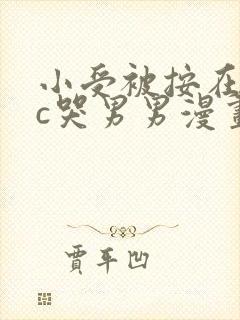 小受被按在
c哭男男漫畫
賈平凹